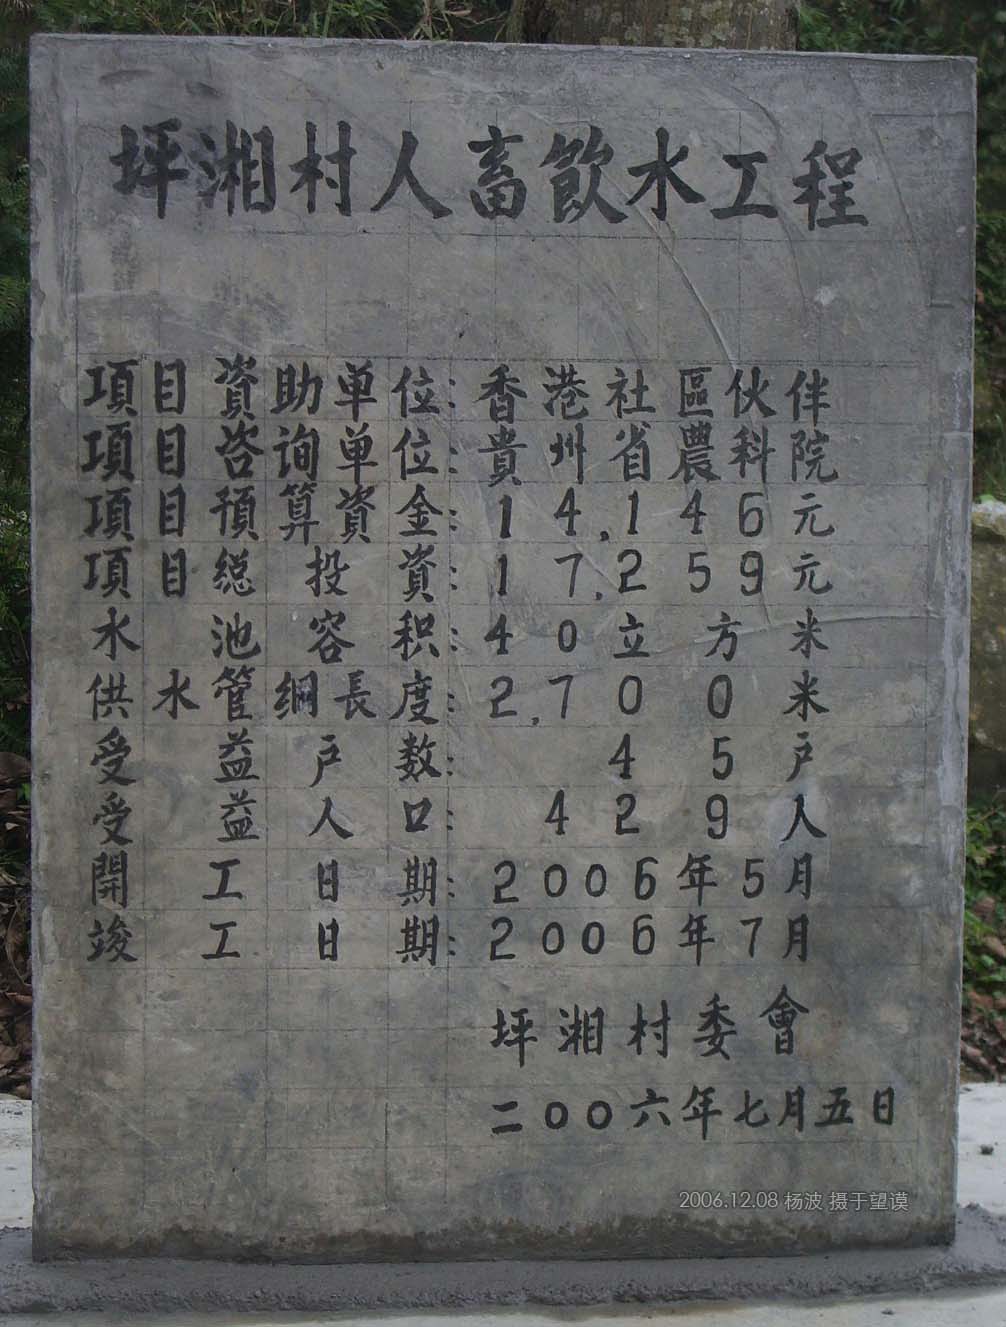 坪湘村人畜飲水工程
項目資助单位:香港社區伙伴
項目咨询单位:貴州省農科院
項目預算資金:14,146元
項目総投資:17,259元
水池容积:40立方米
供水管網長度:2,700米
受益户数:45户
受益人口:429人
開工日期:2006年5月
竣工日期:2006年7月
坪湘村委會
二00六年七月五日
2006.12.08 杨波 摄于望谟